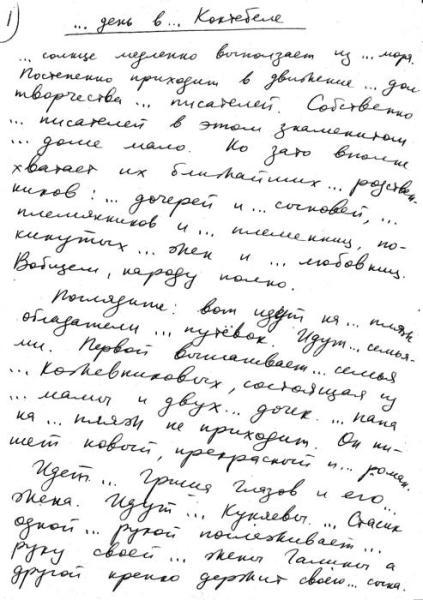 1) ... день в ... Коктебеле
... солнце медленно выползает из ... моря.
Постепенно приходит в движение ... дом
творчества ... писателей. Собственно
... писателей в этом знаменитом
... доме мало. Но зато вполне
хватает их ближайших ... родствен-
ников: ... дочерей и ... сыновей, ...
племянников и ... племянниц, по-
кинутых ... жен и ... любовниц.
Вобщем, народу полно.
Поглядите: вот идут на ... пляж
обладатели ... путёвок. Идут ... семья-
ми. Первой вышагивает ... семья
... Кожевниковых, состоящая из
... мамы и двух ... дочек. ... папа
на ... пляж не приходит. Он пи-
шет новый, прекрасный и ... роман.
Идет ... Гриша Глазов и его ...
жена. Идут ... Куняевы. ... Стасик
одной ... рукой поглаживает ...
руку своей ... жены Галины а
другой крепко держит своего ... сына.